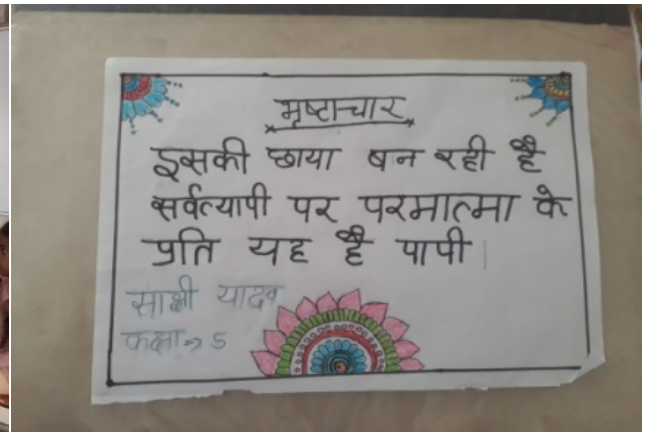 भ्रष्टाचार
इसकी छाया बन रही है
सर्वव्यापी पर परमात्मा के
प्रति यह है पापी
साक्षी यादव
कक्षा → 5